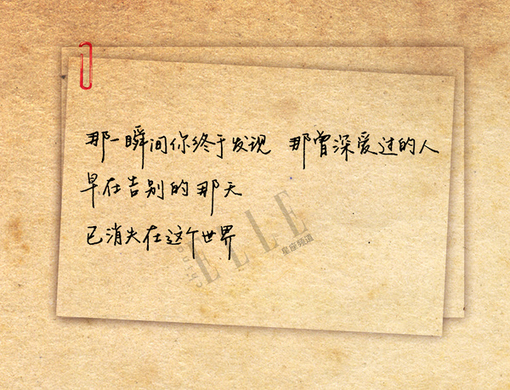 那一瞬间你终于发现 那曾深爱过的人
早在告别的那天
已消失在这个世界
ELLE